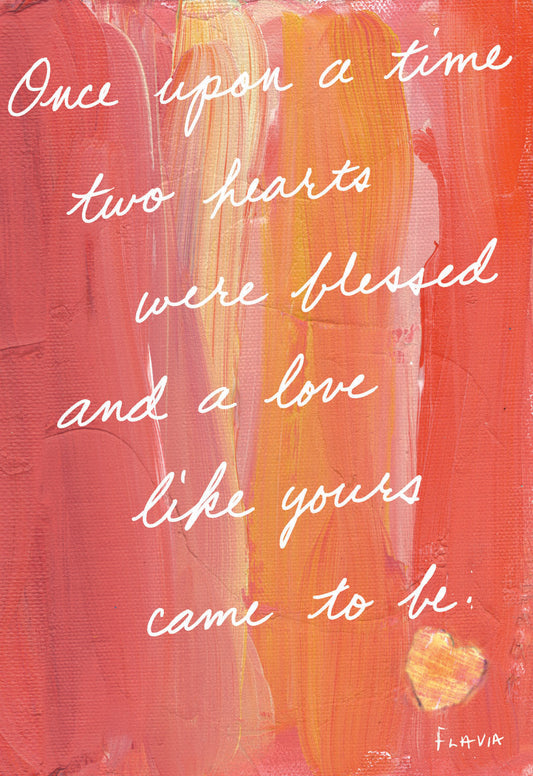 Once upon a time
two hearts
were blessed
and a love
like yours
came to be.
FLAVIA